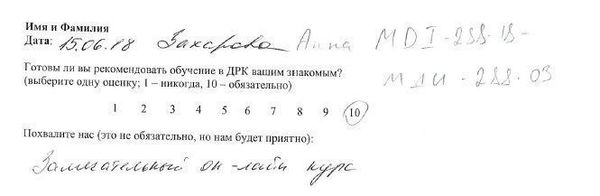 Имя и Фамилия
Дата: 15.06.18 Захарова Анна MDI-288-18-
МДИ-288-03
Готовы ли вы рекомендовать обучение в ДРК вашим знакомым?
(выберите одну оценку; 1 – никогда, 10 – обязательно)
1 2 3 4 5 6 7 8 9 10
Похвалите нас (это не обязательно, но нам будет приятно):
Замечательный он-лайн курс